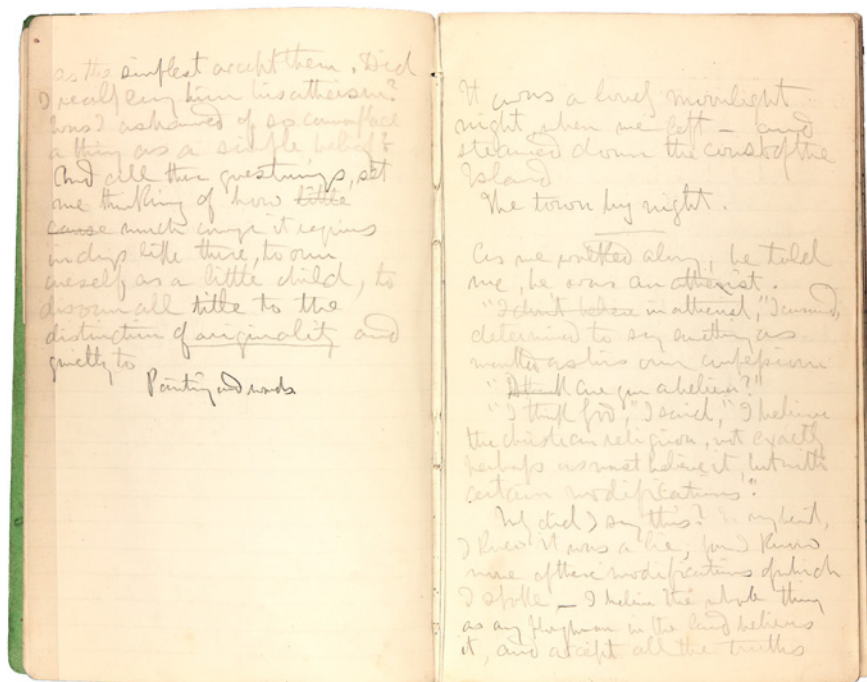 as the simplest accept them. Did
I really envy him his atheism?
Was I ashamed of so commonplace
a thing as a simple belief?
And all these questionings, set
me thinking of how little
cause much courage it requires
in days like these, to own
oneself as a little child, to
disown all title to the
distinction of originality and
quietly to
Painting and words
It was a lovely moonlight
night, when we left – and
steamed down the coast of the
Island
The town by night.
As we walked along, he told
me, he was an atheist.
"I don't believe in atheist," I answered,
determined to say anything as
as his own confession
"are you a believer?"
"I thank God," I said, "I believe
the christian religion, not exactly
perhaps as most believe it, but with
certain modifications".
Why did I say this? In my heart,
I knew it was a lie, I knew
none of these modifications of which
I spoke – I believe the whole thing
as any ploughman in the land believes
it, and accept all the truths